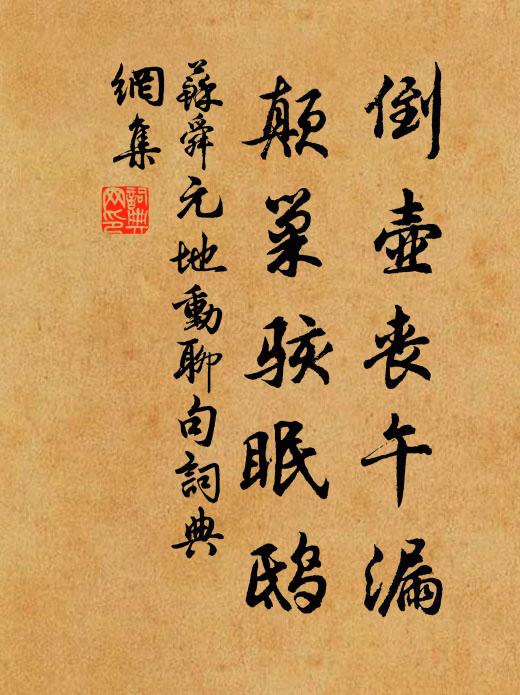 倒壺喪午漏
顛巢駭眠鴟
蘇舜元地動聊句詞典
網集
詞典網印